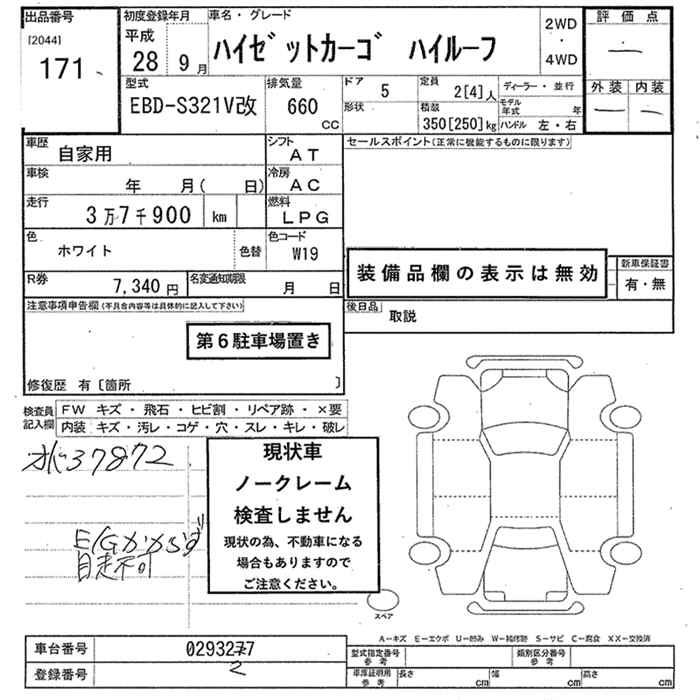 出品番号
[2044]
171
初度登録年月
平成
28 9月
車名・グレード
ハイゼットカーゴ ハイルーフ
2WD
・
4WD
評価点
—
外装 内装
— —
型式
EBD-S321V改
排気量
660
cc
ドア
5
形状
定員
2[4]人
積載
350[250]kg
ディーラー・並行
モデル年式 年
ハンドル 左・右
車歴
自家用
シフト
AT
車検
年 月( 日)
冷房
AC
走行
3万7千900 km
燃料
LPG
色
ホワイト
色替
色コード
W19
R券
7,340円
名変通知期限
月 日
セールスポイント(正常に機能するものに限ります)
装備品欄の表示は無効
新車保証書
有・無
後日品
取説
注意事項申告欄(不具合内容等は具体的に記入して下さい)
第6駐車場置き
修復歴 有〔箇所 〕
検査員記入欄
FW キズ・飛石・ヒビ割・リペア跡・×要
内装 キズ・汚レ・コゲ・穴・スレ・キレ・破レ
37872
E/Gかからず
自走不可
現状車
ノークレーム
検査しません
現状の為、不動車になる
場合もありますので
ご注意ください。
スペア
A—キズ E—エクボ U—凹み W—補修跡 S—サビ C—腐食 XX—交換済
車台番号
0293277
2
登録番号
型式指定番号
参考
類別区分番号
参考
車庫証明用
参考
長さ cm
幅 cm
高さ cm